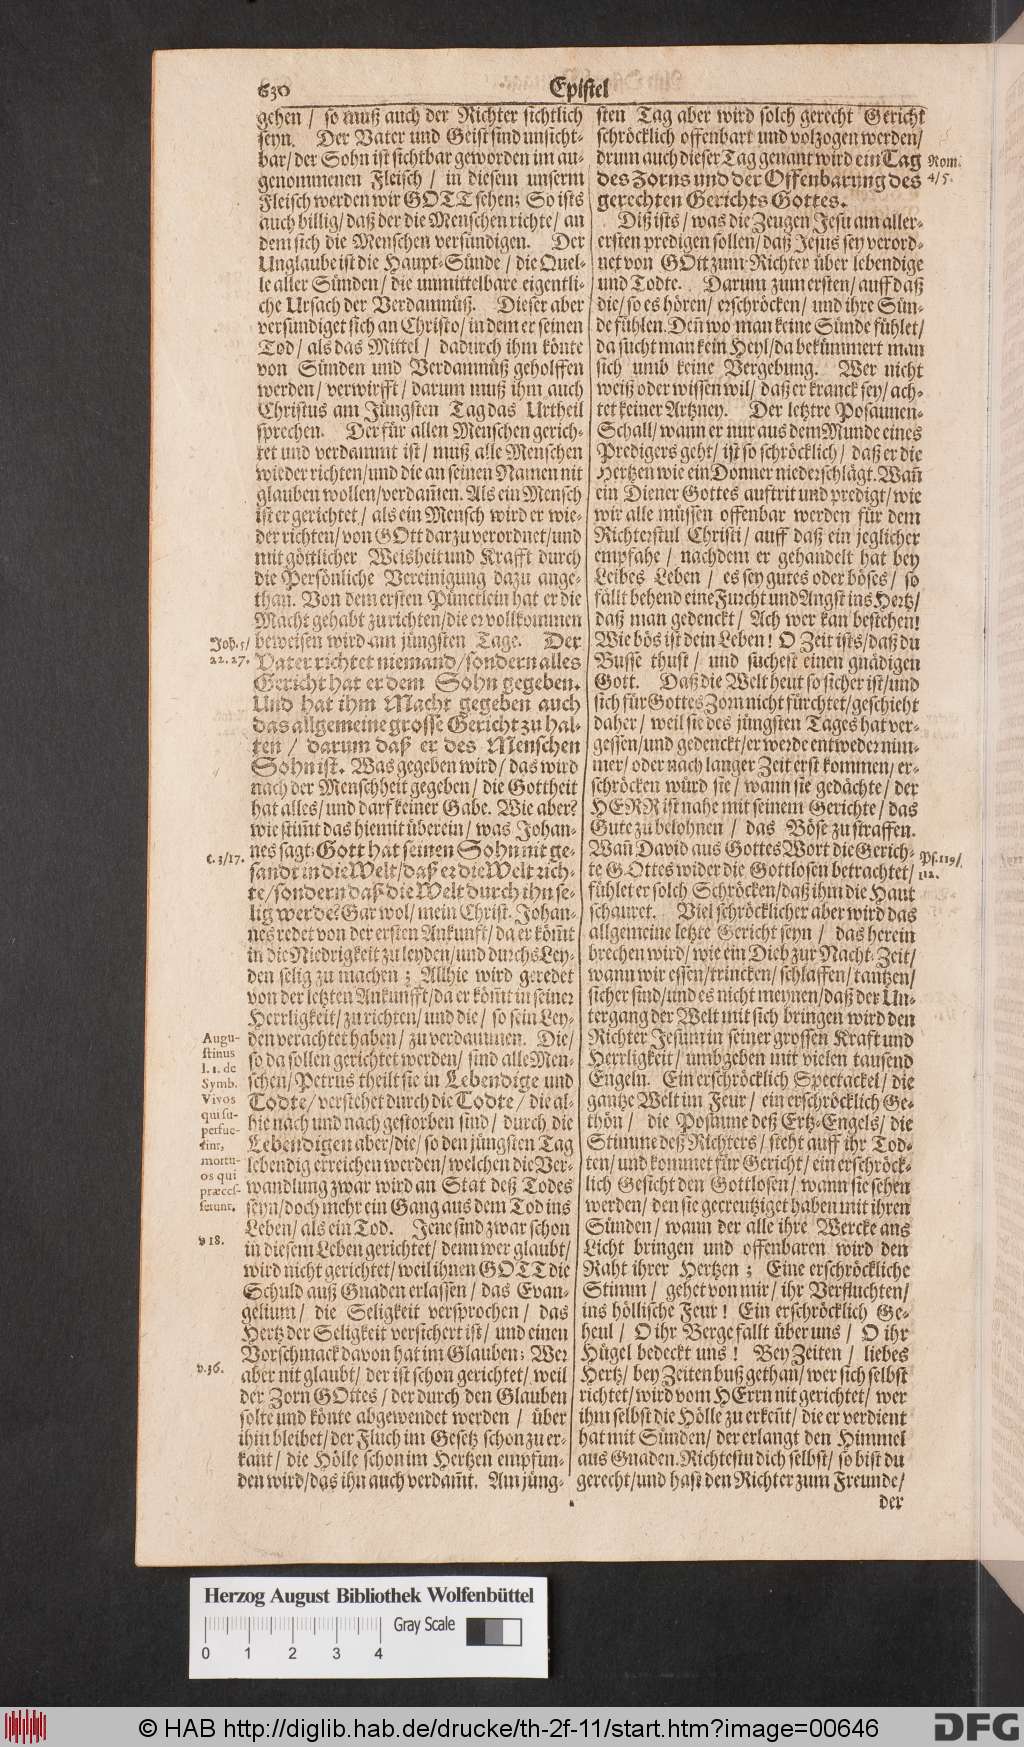 630
Epistel
gehen / so muß auch der Richter sichtlich
seyn. Der Vater und Geist sind unsicht-
bar/ der Sohn ist sichtbar geworden im an-
genommenen Fleisch / in diesem unserm
Fleisch werden wir GOTT sehen; So ists
auch billig/ daß der die Menschen richte/ an
dem sich die Menschen versündigen. Der
Unglaube ist die Haupt-Sünde / die Quel-
le aller Sünden/ die unmittelbare eigentli-
che Ursach der Verdamnüß. Dieser aber
versündiget sich an Christo/ in dem er seinen
Tod/ als das Mittel/ dadurch ihm könte
von Sünden und Verdamnüß geholffen
werden/ verwirfft/ darum muß ihm auch
Christus am Jüngsten Tag das Urtheil
sprechen. Der für allen Menschen gerich-
tet und verdammt ist/ muß alle Menschen
wieder richten/ und die an seinen Namen nit
glauben wollen/ verdam̃en. Als ein Mensch
ist er gerichtet/ als ein Mensch wird er wie-
der richten/ von GOtt darzu verordnet/ und
mit göttlicher Weisheit und Krafft durch
die Persönliche Vereinigung dazu ange-
than. Von dem ersten Pünctlein hat er die
Macht gehabt zu richten/ die er vollkommen
beweisen wird am jüngsten Tage. Der
Vater richtet niemand/ sondern alles
Gericht hat er dem Sohn gegeben.
Und hat ihm Macht gegeben auch
das allgemeine grosse Gericht zu hal-
ten / darum daß er des Menschen
Sohn ist. Was gegeben wird/ das wird
nach der Menschheit gegeben/ die Gottheit
hat alles/ und darf keiner Gabe. Wie aber?
wie stim̃t das hiemit überein/ was Johan-
nes sagt: Gott hat seinen Sohn nit ge-
sandt in die Welt/ daß er die Welt rich-
te/ sondern daß die Welt durch ihn se-
lig werde? Gar wol/ mein Christ. Johan-
nes redet von der ersten Ankunft/ da er köm̃t
in die Niedrigkeit zu leyden/ und durchs Ley-
den selig zu machen; Allhie wird geredet
von der letzten Ankunfft/ da er köm̃t in seiner
Herrligkeit/ zu richten/ und die/ so sein Ley-
den verachtet haben/ zu verdammen. Die/
so da sollen gerichtet werden/ sind alle Men-
schen/ Petrus theilt sie in Lebendige und
Todte/ verstehet durch die Todte/ die al-
hie nach und nach gestorben sind/ durch die
Lebendigen aber/ die/ so den jüngsten Tag
lebendig erreichen werden/ welchen die Ver-
wandlung zwar wird an Stat deß Todes
seyn/ doch mehr ein Gang aus dem Tod ins
Leben/ als ein Tod. Jene sind zwar schon
in diesem Leben gerichtet/ denn wer glaubt/
wird nicht gerichtet/ weil ihnen GOTT die
Schuld auß Gnaden erlassen/ das Evan-
gelium/ die Seligkeit versprochen/ das
Hertz der Seligkeit versichert ist/ und einen
Vorschmack davon hat im Glauben; Wer
aber nit glaubt/ der ist schon gerichtet/ weil
der Zorn GOttes/ der durch den Glauben
solte und könte abgewendet werden / über
ihm bleibet/ der Fluch im Gesetz schon zu er-
kant/ die Hölle schon im Hertzen empfun-
den wird/ das ihn auch verdam̃t. Am jüng-
Joh. 5/
22. 27.
c. 3/17.
Augu-
stinus
l. 1. de
Symb.
Vivos
qui su-
perfue-
rint,
mortu-
os qui
præces-
serunt.
v 18.
v. 36.
sten Tag aber wird solch gerecht Gericht
schröcklich offenbart und volzogen werden/
drum auch dieser Tag genant wird ein Tag
des Zorns und der Offenbarung des
gerechten Gerichts Gottes.
Diß ists/ was die Zeugen Jesu am aller-
ersten predigen sollen/ daß Jesus sey verord-
net von GOtt zum Richter über lebendige
und Todte. Darum zum ersten/ auff daß
die/ so es hören/ erschröcken/ und ihre Sün-
de fühlen. Den̄ wo man keine Sünde fühlet/
da sucht man kein Heyl/ da bekümmert man
sich umb keine Vergebung. Wer nicht
weiß oder wissen wil/ daß er kranck sey/ ach-
tet keiner Artzney. Der letzte Posaunen-
Schall/ wann er nur aus dem Munde eines
Predigers geht/ ist so schröcklich/ daß er die
Hertzen wie ein Donner niederschlägt. Wan̄
ein Diener Gottes auftrit und predigt/ wie
wir alle müssen offenbar werden für dem
Richterstul Christi/ auff daß ein jeglicher
empfahe/ nachdem er gehandelt hat bey
Leibes Leben/ es sey gutes oder böses/ so
fällt behend eine Furcht und Angst ins Hertz/
daß man gedenckt/ Ach wer kan bestehen!
Wie bös ist dein Leben! O Zeit ists/ daß du
Busse thust/ und suchest einen gnädigen
Gott. Daß die Welt heut so sicher ist/ und
sich für Gottes Zorn nicht fürchtet/ geschieht
daher/ weil sie des jüngsten Tages hat ver-
gessen/ und gedenckt/ er werde entweder nim-
mer/ oder nach langer Zeit erst kommen/ er-
schröcken würd sie/ wann sie gedächte/ der
HERR ist nahe mit seinem Gerichte/ das
Gute zu belohnen/ das Böse zu straffen.
Wan̄ David aus Gottes Wort die Gerich-
te GOttes wider die Gottlosen betrachtet/
fühlet er solch Schröcken/ daß ihm die Haut
schauret. Viel schröcklicher aber wird das
allgemeine letzte Gericht seyn/ das herein
brechen wird/ wie ein Dieb zur Nacht-Zeit/
wann wir essen/ trincken/ schlaffen/ tantzen/
sicher sind/ und es nicht meynen/ daß der Un-
tergang der Welt mit sich bringen wird den
Richter Jesum in seiner grossen Kraft und
Herrligkeit/ umbgeben mit vielen tausend
Engeln. Ein erschröcklich Spectackel/ die
gantze Welt im Feur/ ein erschröcklich Ge-
thön/ die Posaune deß Ertz-Engels/ die
Stimme deß Richters/ steht auff ihr Tod-
ten/ und kommet für Gericht/ ein erschröck-
lich Gesicht den Gottlosen/ wann sie sehen
werden/ den sie gecreutziget haben mit ihren
Sünden/ wann der alle ihre Wercke ans
Licht bringen und offenbaren wird den
Raht ihrer Hertzen; Eine erschröckliche
Stimm/ gehet von mir/ ihr Verfluchten/
ins höllische Feur! Ein erschröcklich Ge-
heul/ O ihr Berge fallt über uns/ O ihr
Hügel bedeckt uns! Bey Zeiten/ liebes
Hertz/ bey Zeiten buß gethan/ wer sich selbst
richtet/ wird vom HErrn nit gerichtet/ wer
ihm selbst die Hölle zu erken̄t/ die er verdient
hat mit Sünden/ der erlangt den Himmel
aus Gnaden. Richtestu dich selbst/ so bist du
gerecht/ und hast den Richter zum Freunde/
der
Rom.
4/5.
Ps. 119/
112.
Herzog August Bibliothek Wolfenbüttel
Gray Scale
0 1 2 3 4
© HAB http://diglib.hab.de/drucke/th-2f-11/start.htm?image=00646
DFG